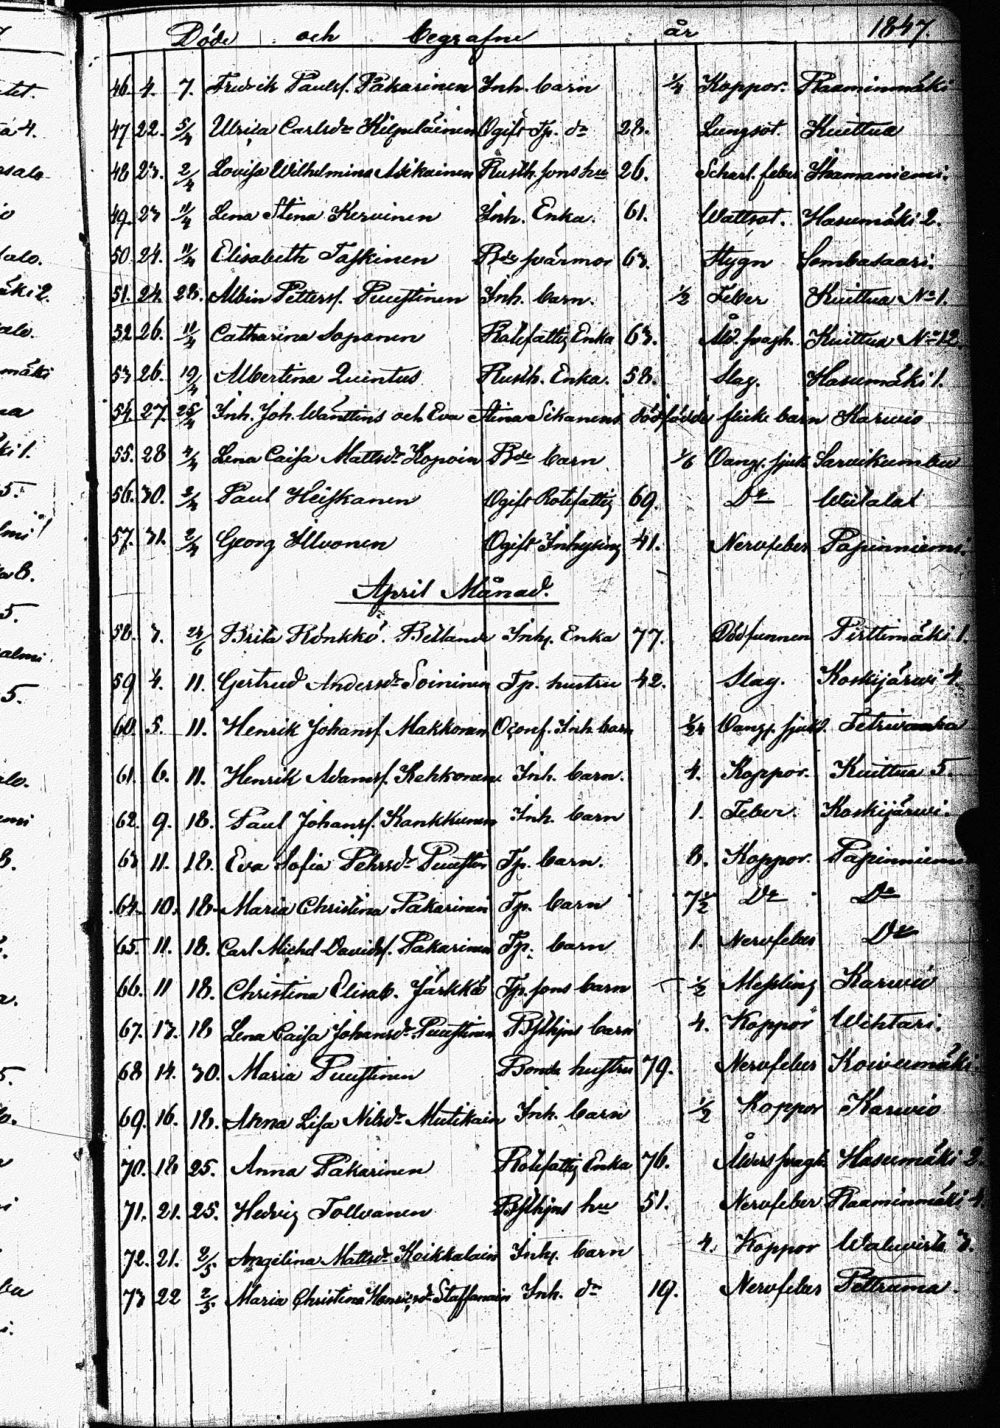 Döde och begrafne år 1847.
46. 4. 7. Fredrik Paulsf. Pakarinen Inh. barn 1/4 Koppor. Raaminmäki
47 22. 5/4 Ulrica Carlsdr Kilpeläinen Ogift Tp. dr 28. Lungsot. Kuittua
48 23. 2/4 Lovisa Wilhelmina Asikainen Rusth. sons hu 26. Scharl. feber Hamaniemi.
49. 23 11/4 Lena Stina Kervinen Inh. Enka. 61. Wattsot. Hasumäki 2.
50. 24. 11/4 Elisabeth Taskinen Bde svärmor 63. Stygn Sombasaari.
51. 24. 28. Albin Pettersf. Puustinen Inh. barn. 1/2 Feber Kuittua No 1.
52. 26. 11/4 Catharina Soponen Rotefattig Enka 63. Ald. svagh. Kuittua No 12
53 26. 19/4 Albertina Quintus Rusth. Enka. 58. Slag. Hasumäki 1.
54. 27. 25/4 Inh. Joh. Wänttins och Eva Stina Sikanens dödfödde flicke barn Karvio
55. 28 4/4 Lena Caisa Mattsdr Hopoin Bde barn 1/6 Oangf. sjuk Sarvikumbu
56. 30. 2/4 Paul Heiskanen Ogift Rotefattig 69. Do
57. 31. 2/4 Georg Ilvonen Ogift Inhysing 41. Nervfeber Papinniemi.
April Månad.
58. 3. 24/6 Brita Rönkkö. Inhy. Enka 77. Dödfunnen Pirttimäki 1.
59 4. 11. Gertrud Andersdr Soininen Tp. hustru 42. Slag. Koskijärwi 4.
60. 5. 11. Henrik Johansf. Makkonen Oconf. Inh. barn 1/24 Oangf. sjukd. Petrivaara
61. 6. 11. Henrik Adamsf. Kehkonen Inh. barn. 4. Koppor. Kuittua 5.
62. 9. 18. Paul Johansf. Kankkunen Inh. barn 1. Feber. Koskijärwi.
63 11. 18. Eva Sofia Pehrsdr Puustin Tp. barn. 8. Koppor. Papinniemi
64. 10. 18. Maria Christina Pakarinen Tp. barn 7 1/2 Do Do
65. 11. 18. Carl Michel Davidsf. Pakarinen Tp. barn 1. Nervfeber Do
66. 11 18. Christina Elisab. Järkkö Tp. sons barn 1/2 Messling Karwio
67. 13. 18 Lena Caisa Johansdr Puustinen barn 4. Koppor Wihtari.
68 14. 30. Maria Puustinen Bonde hustru 79. Nervfeber Koivumäki
69. 16. 18. Anna Lisa Nilsdr Mutikain Inh. barn 1/2 Koppor Karwio
70. 18 25. Anna Pakarinen Rotefattig Enka 76. Ålders svagh. Hasumäki 2.
71. 21. 25. Hedvig Tollvanen hu 51. Nervfeber Raaminmäki 4.
72. 21. 2/5 Angelina Mattsdr Koikkalain Inhy. barn 4. Koppor Walwisto 3.
73 22 2/5 Maria Christina Henricsdr Staffanain Inh. dr 19. Nervfeber Pettruma.